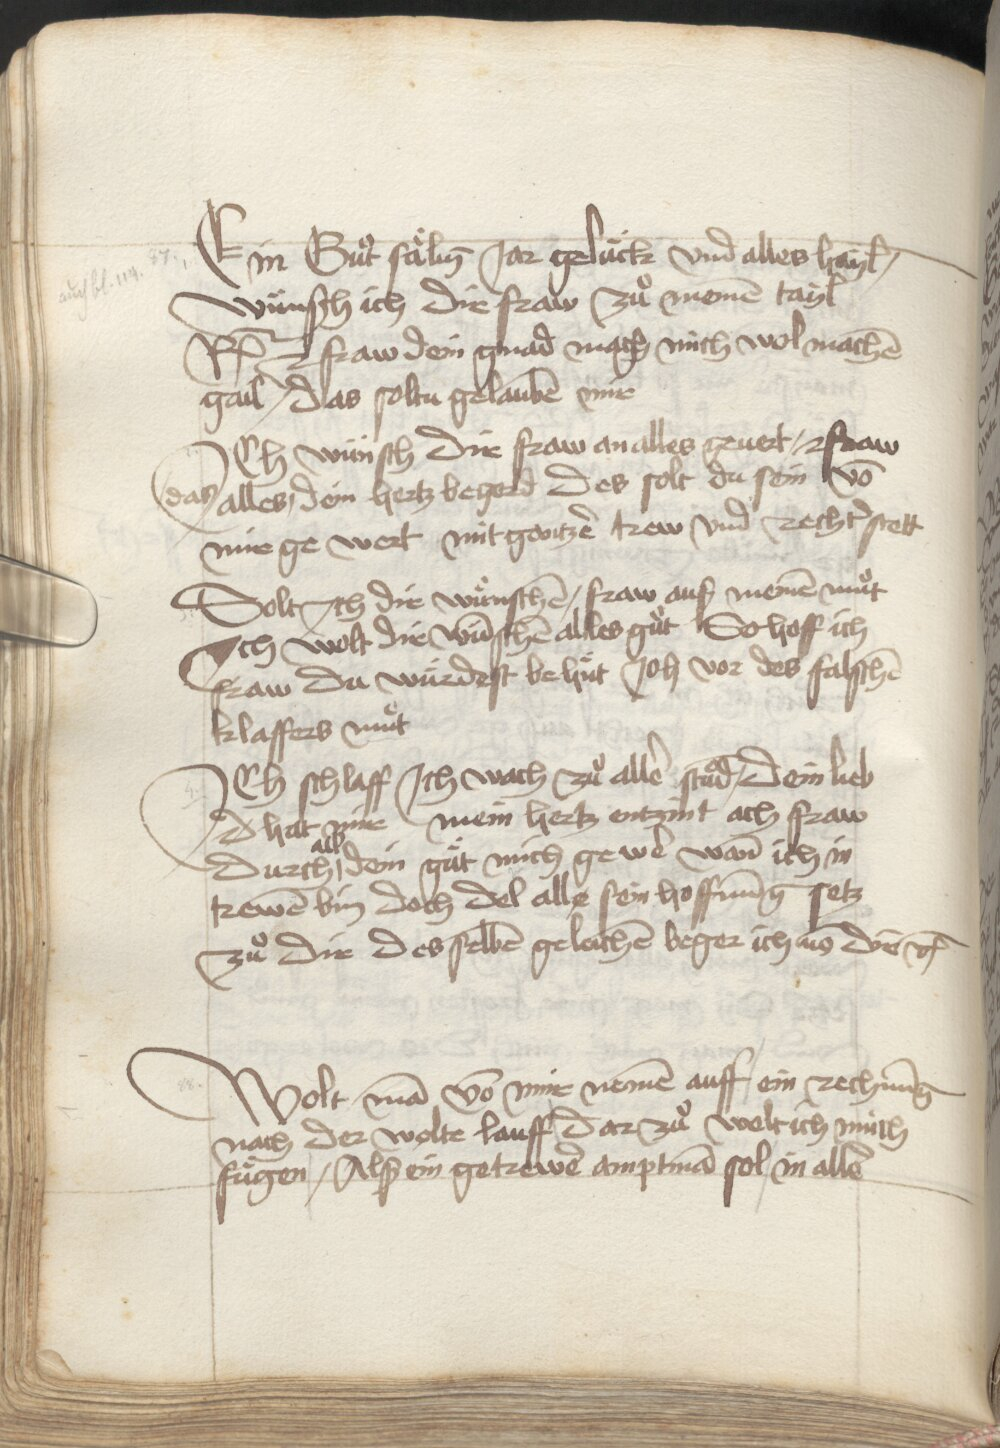 Ein Guͦt saͤlig Jar geluͤck vnd alles hayl /
wuͤnsch ich dir fraw zuͦ meinē tayl
fraw dein gnad mach mich wol machē
gail / das soltu gelaubē mir
ICh wünsch dir fraw an alles geuert / fraw
das alles dein hertz begerd des solt du sein vō
mir ge wert mit gantzē trew vnd recht' stett
Solt Ich dir wuͤnschē / fraw auß meinē muͦt
Ich wolt dir wünschē alles guͦt So hoff ich
fraw du wuͤrdest be huͤt Joh vor des falschē
klaffers muͦt
ICh schlaff Ich wach zuͦ allē stūd / dein lieb
d hat mir mein hertz entzint ach fraw
durch all dein guͤt mich gewer wan̄ ich in
trewē bin doch del alle sein hoffnūg setz
zuͦ dir des selbē geleichē beger ich vō dir
Wolt mā vō mir nemē auff ein rechnūg
nach der wolte lauff dar zuͦ wolt ich mich
fuͤgen / Alß ein getrewer amptmā sol / in allē
auch bl. 114.
87.
88.